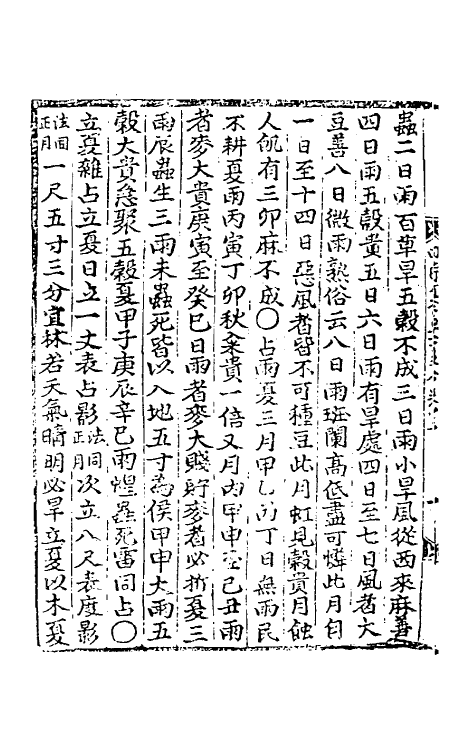 蟲二日雨百草旱五穀不成三日雨小旱風從西來麻善
四日雨五穀貴五日六日雨有旱處四日至七日風者大
豆善八日微雨熟俗云八日雨斑闌高低盡可憐此月自
一日至十四日惡風者皆不可種豆此月虹見穀貴月蝕
人飢有三卯麻不成〇占雨夏三月甲乙丙丁日無雨民
不耕夏雨丙寅丁卯秋穀貴一倍又月內甲申至己丑雨
者麥大貴庚寅至癸巳日雨者麥大賤貯麥者必折夏三
雨辰蟲生三雨未蟲死皆以入地五寸為侯甲申大雨五
穀大貴急聚五穀夏甲子庚辰辛巳雨蝗蟲死雷同占〇
立夏雜占立夏日立一丈表占影法同正月次立八尺表度影
法同正月一尺五寸三分宜林若天氣晴明必旱立夏以木夏